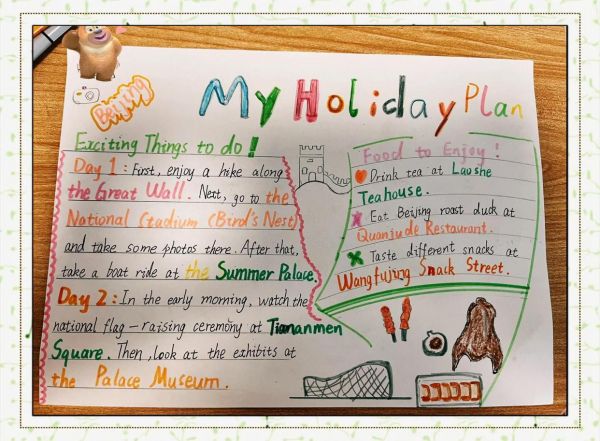 My Holiday Plan
Beijing
Exciting Things to do!
Day 1: First, enjoy a hike along
the Great Wall. Next, go to the
National Ctadium (Bird's Nest)
and take some photos there. After that,
take a boat ride at the Summer Palace.
Day 2: In the early morning, watch the
national flag-raising ceremony at Tiananmen
Square. Then, look at the exhibits at
the Palace Museum.
Food to Enjoy!
Drink tea at Laoshe
Teahouse.
Eat Beijing roast duck at
Quanjude Restaurant.
Taste different snacks at
Wangfujing Snack Street.